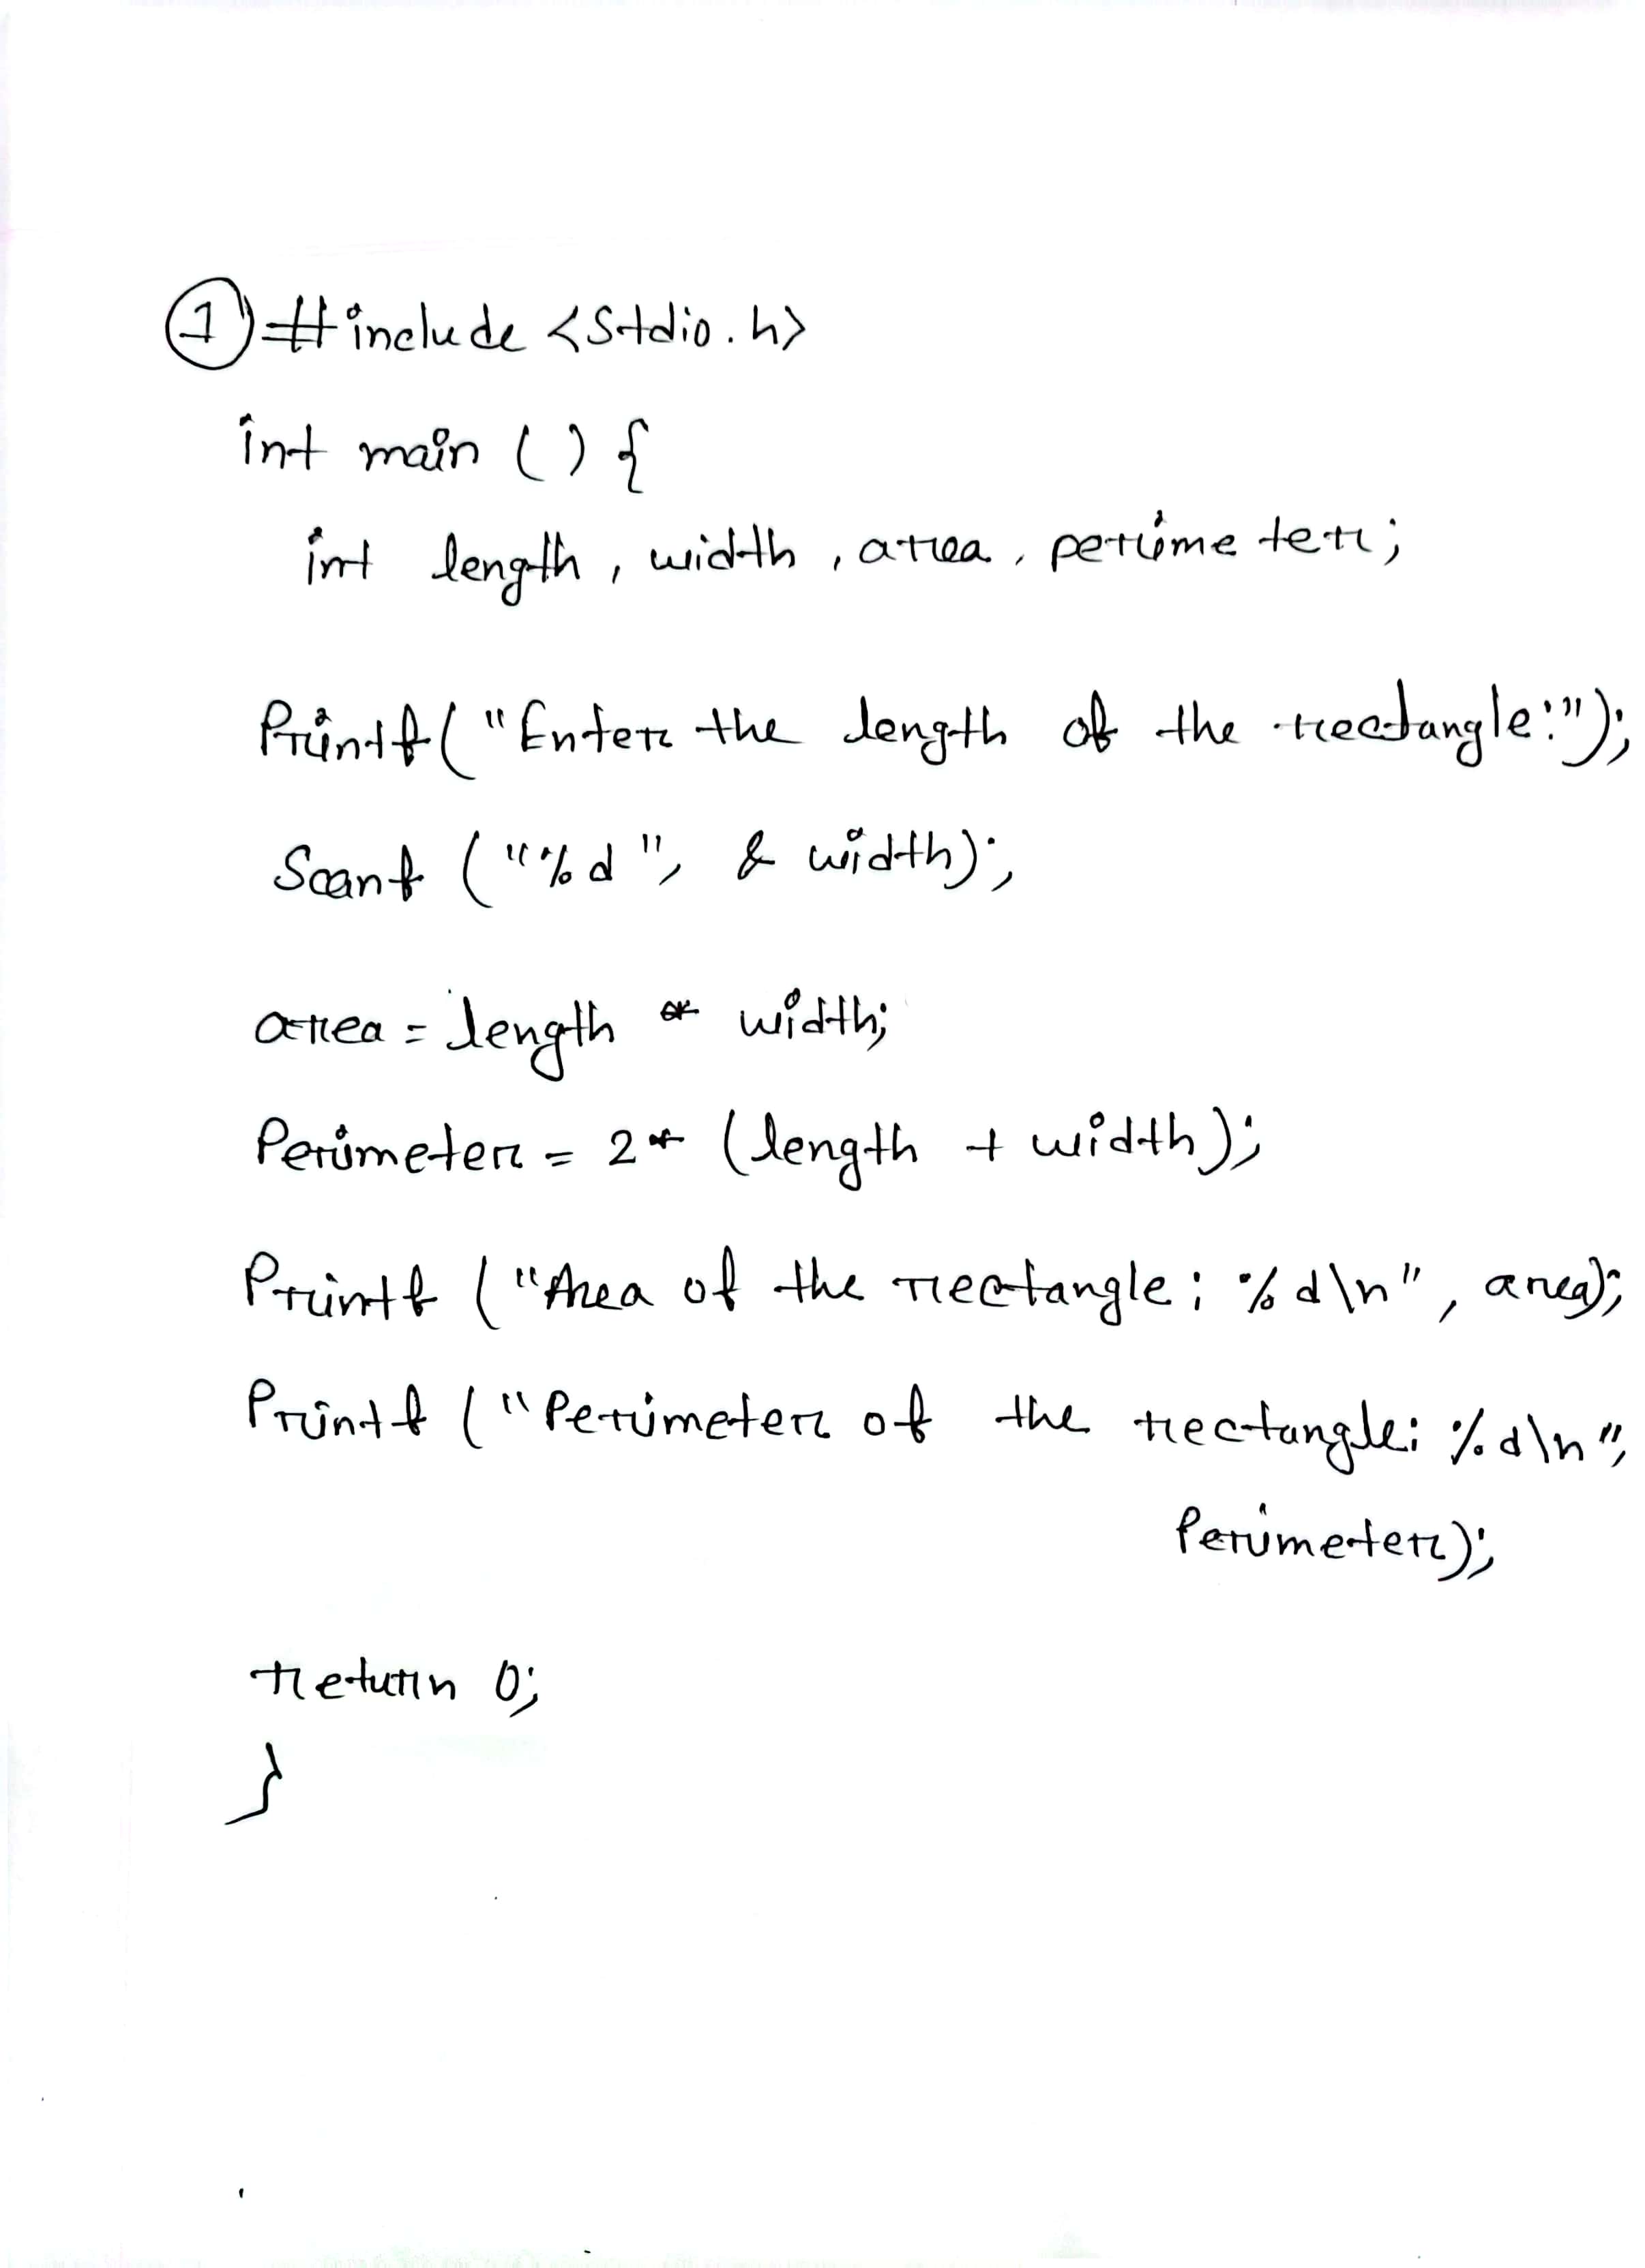 ① #include <Stdio.h>
int main () {
int length, width, area, perimeter;
Printf("Enter the length of the rectangle:");
Scanf ("%d", & width);
area = length * width;
Perimeter = 2* (length + width);
Printf ("Area of the rectangle: %d\n", area);
Printf ("Perimeter of the rectangle: %d\n",
Perimeter);
return 0;
}